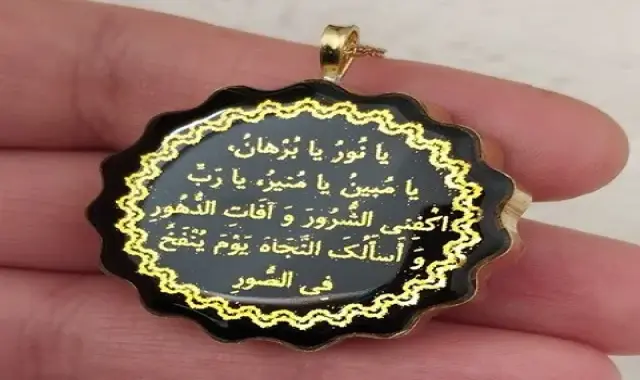 يا نُورُ يا بُرْهانُ،
يا مُبينُ يا مُنيرُ، يا رَبِّ
اكْفِني الشُّرُورَ وَ آفاتِ الدُّهُورِ
وَ أَسأَلُکَ النَّجاةَ يَوْمَ يُنْفَخُ
فِي الصُّورِ